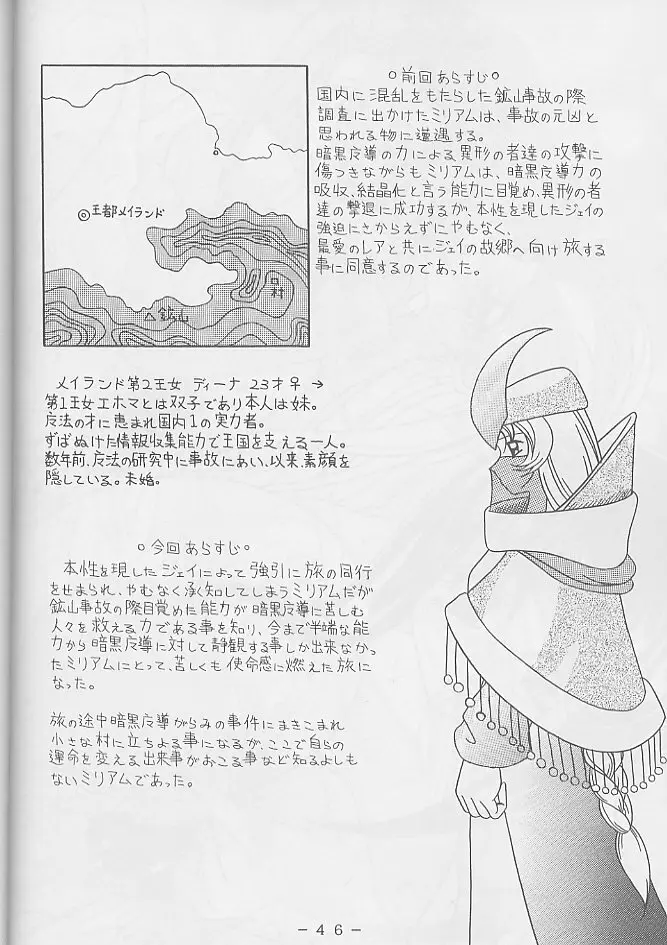 ○前回あらすじ○
国内に混乱をもたらした鉱山事故の際
調査に出かけたミリアムは、事故の元凶と
思われる物に遭遇する。
暗黒反導の力による異形の者達の攻撃に
傷つきながらもミリアムは、暗黒反導力の
吸収、結晶化と言う能力に目覚め、異形の者
達の撃退に成功するが、本性を現したジェイの
強迫にさからえずにやむなく、
最愛のレアと共にジェイの故郷へ向け旅する
事に同意するのであった。
◎王都メイランド
□村
△鉱山
メイランド第2王女 ディーナ 23才♀→
第1王女エホマとは双子であり本人は妹。
反法の才に恵まれ国内1の実力者。
ずばぬけた情報収集能力で王国を支える一人。
数年前、反法の研究中に事故にあい、以来、素顔を
隠している。未婚。
○今回あらすじ○
本性を現したジェイによって強引に旅の同行
をせまられ、やむなく承く知してしまうミリアムだが
鉱山事故の際目覚めた能力が暗黒反導に苦しむ
人々を救える力である事を知り、今まで半端な能
力から暗黒反導に対して静観する事しか出来なかっ
たミリアムにとって、苦しくも使命感に燃えた旅に
なった。
旅の途中暗黒反導がらみの事件にまきこまれ
小さな村に立ちよる事になるが、ここで自らの
運命を変える出来事がおこる事など知るよしも
ないミリアムであった。
－46－